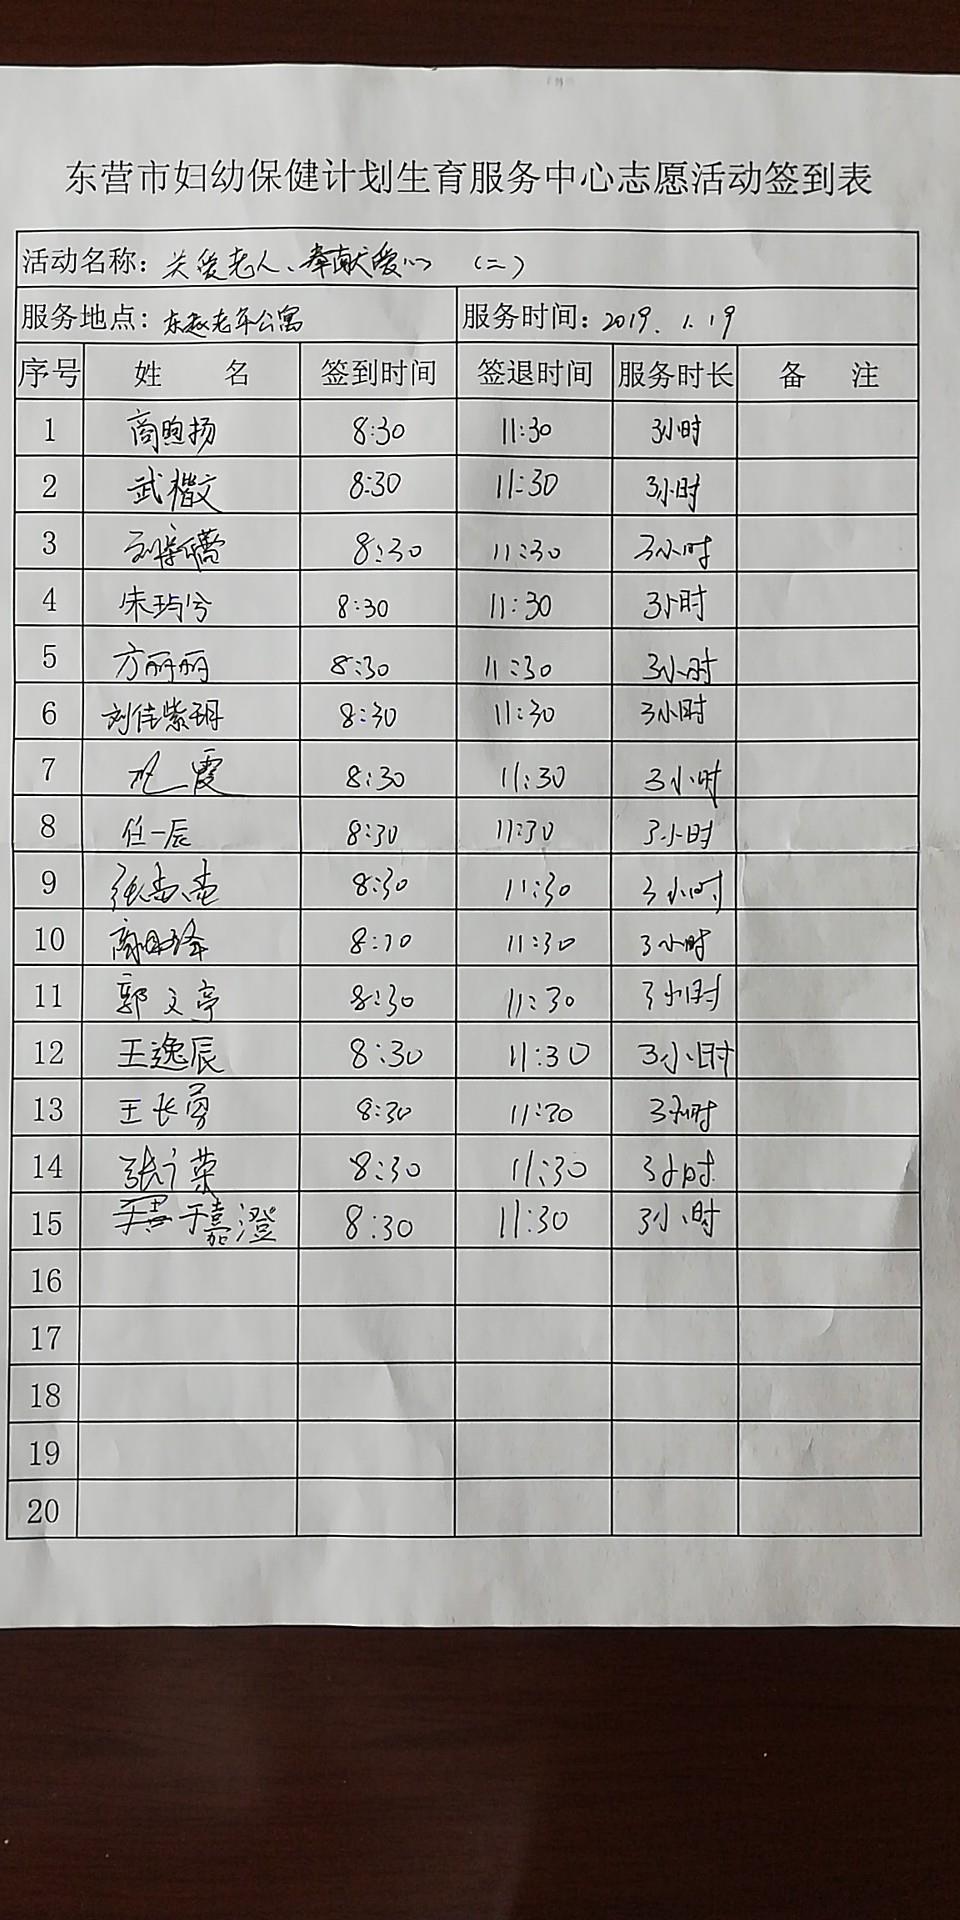 东营市妇幼保健计划生育服务中心志愿活动签到表
活动名称：关爱老人、奉献爱心 （二）
服务地点：东赵老年公寓 服务时间：2019.1.19
序号 姓 名 签到时间 签退时间 服务时长 备 注
1 商煦扬 8:30 11:30 3小时
2 武楷文 8:30 11:30 3小时
3 8:30 11:30 3小时
4 朱玙兮 8:30 11:30 3小时
5 方丽丽 8:30 11:30 3小时
6 刘佳紫玥 8:30 11:30 3小时
7 霞 8:30 11:30 3小时
8 任一辰 8:30 11:30 3小时
9 张 8:30 11:30 3小时
10 商 8:30 11:30 3小时
11 郭文亭 8:30 11:30 3小时
12 王逸辰 8:30 11:30 3小时
13 王长勇 8:30 11:30 3小时
14 张广荣 8:30 11:30 3小时
15 于嘉澄 8:30 11:30 3小时
16
17
18
19
20